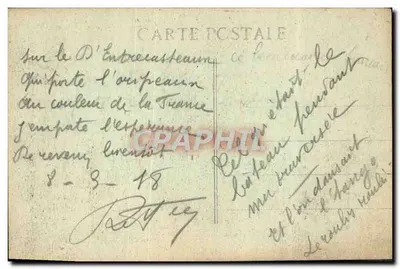 CARTE POSTALE
sur le D'Entrecasteaux
qui porte l'oripeaux
au couleur de la France
j'emporte l'espérance
De revenir bientôt
8-3-18
CPARAMA
Ce qu'était le
bateau pendant
ma traversée
Et l'on dansait
le tango
Le roulis roulis